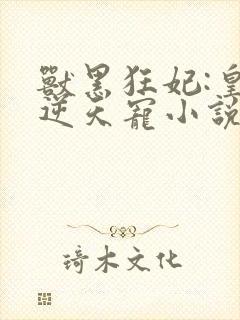 獸黑狂妃:皇
逆天寵小說
琦木文化